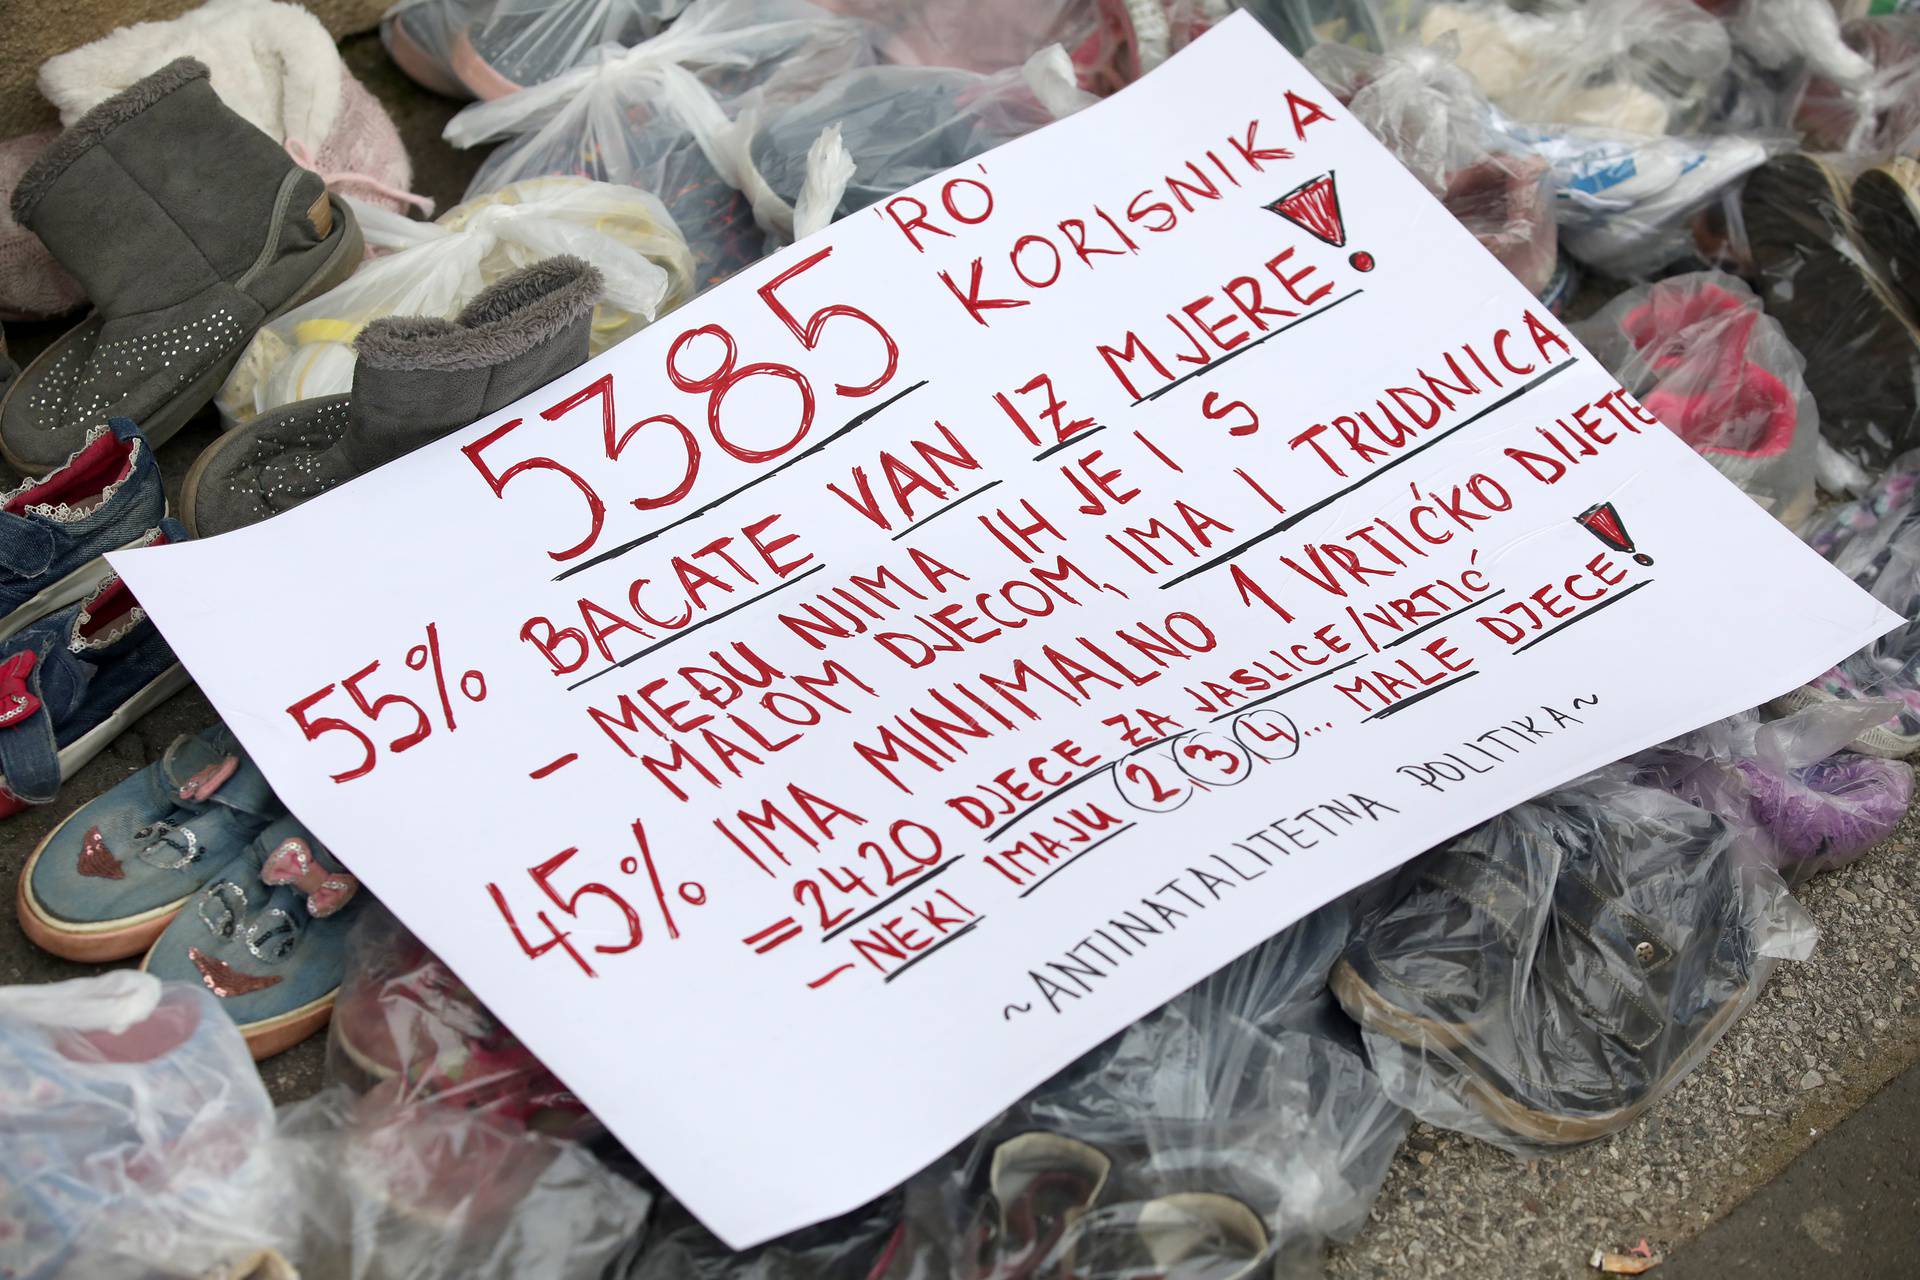 5385 'RO' KORISNIKA
55% BACATE VAN IZ MJERE!
- MEĐU NJIMA IH JE I S
MALOM DJECOM, IMA I TRUDNICA
45% IMA MINIMALNO 1 VRTIĆKO DIJETE
=2420 DJECE ZA JASLICE/VRTIĆ
- NEKI IMAJU 2 3 4... MALE DJECE!
~ANTINATALITETNA POLITIKA~